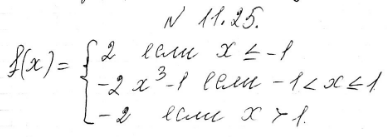 N 11.25.
f(x) = { 2 если x ≤ -1
-2x³-1 если -1 < x ≤ 1
-2 если x > 1.